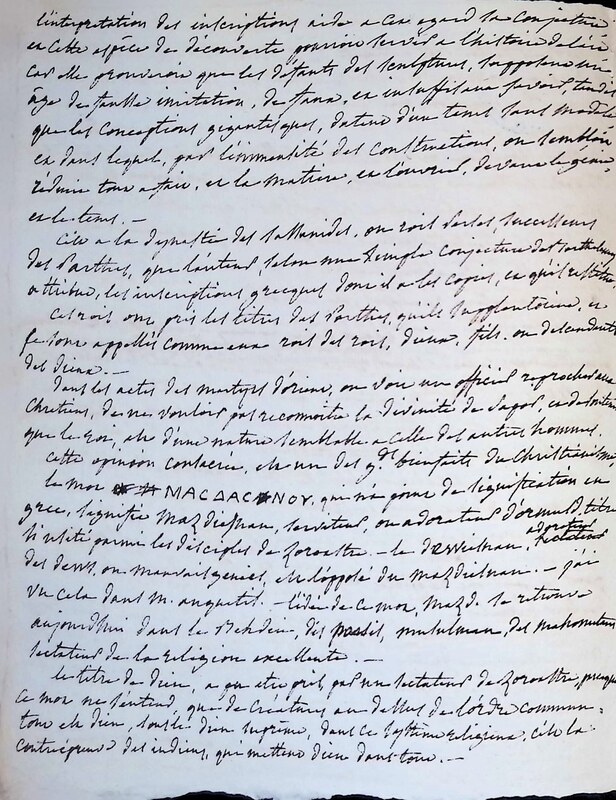 l'interpretation des inscriptions aide a cet egard sa conjecture
et cette espece de découverte pourroit servir a l'histoire de l'ecri
car elle prouveroit que les défauts des sculptures, supposent un
âge de fausse imitation, de faux, et insuffisant savoir, tandis
que les conceptions gigantesques, datent d'un tems sans modele
et dans lequel, par l'immensité des constructions, on sembloit
réduire tout a fait, et la matiere, et l'ouvrier, devant le génie
et le tems. —
C'est a la dynastie des sassanides, ou rois perses, successeurs
des Parthes, que l'auteur, selon une simple conjecture de
attribue, les inscriptions grecques dont il a les copies, et qu'il restitue
Ces rois ont pris les titres des Parthes, qu'ils supplantoient, et
se sont appellés comme eux rois des rois, dieux, fils, ou descendants
des dieux. —
Dans les actes des martyrs d'orient, on voit un officier reprocher aux
Chretiens, de ne vouloir pas reconnoitre la divinité de Sapor, et de dire
que le roi, est d'une nature semblable a celle des autres hommes.
cette opinion consacrée, est un des gds bienfaits du Christianisme
le mot ΜΑCΔΑCΝΟΥ, qui n'a point de signification en
grec, signifie Mazdiesnan, serviteur, ou adorateur d'ormusd, titre
si usité parmi les disciples de Zoroastre. — le dewiesnan, adorateur
des dews, ou mauvais genies, est l'opposé du mazdiesnan. — j'ai
vu cela dans m. anquetil. — l'idée de ce mot, Mazd. se retrouve
aujourdhui dans le Behdin, des Parsis, musulman, des mahometans
sectateur de la religion excellente. —
le titre de dieu, a pu etre pris par un sectateur de Zoroastre, puisque
ce mot ne s'entend, que de creatures au dessus de l'ordre commun —
tout est dieu, sous le dieu suprême, dans ce systême religieux, c'est la
contréépreuve des indiens, qui mettent dieu dans tout. —